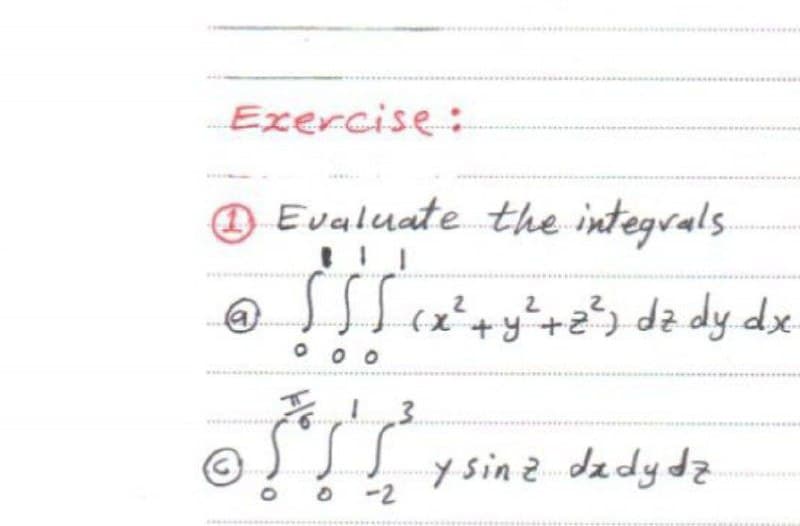 Exercise:
① Evaluate the integrals
ⓐ ∫₀¹ ∫₀¹ ∫₀¹ (x² + y² + z²) dz dy dx
ⓒ ∫₀^(π/6) ∫₀¹ ∫₋₂³ y sin z dx dy dz